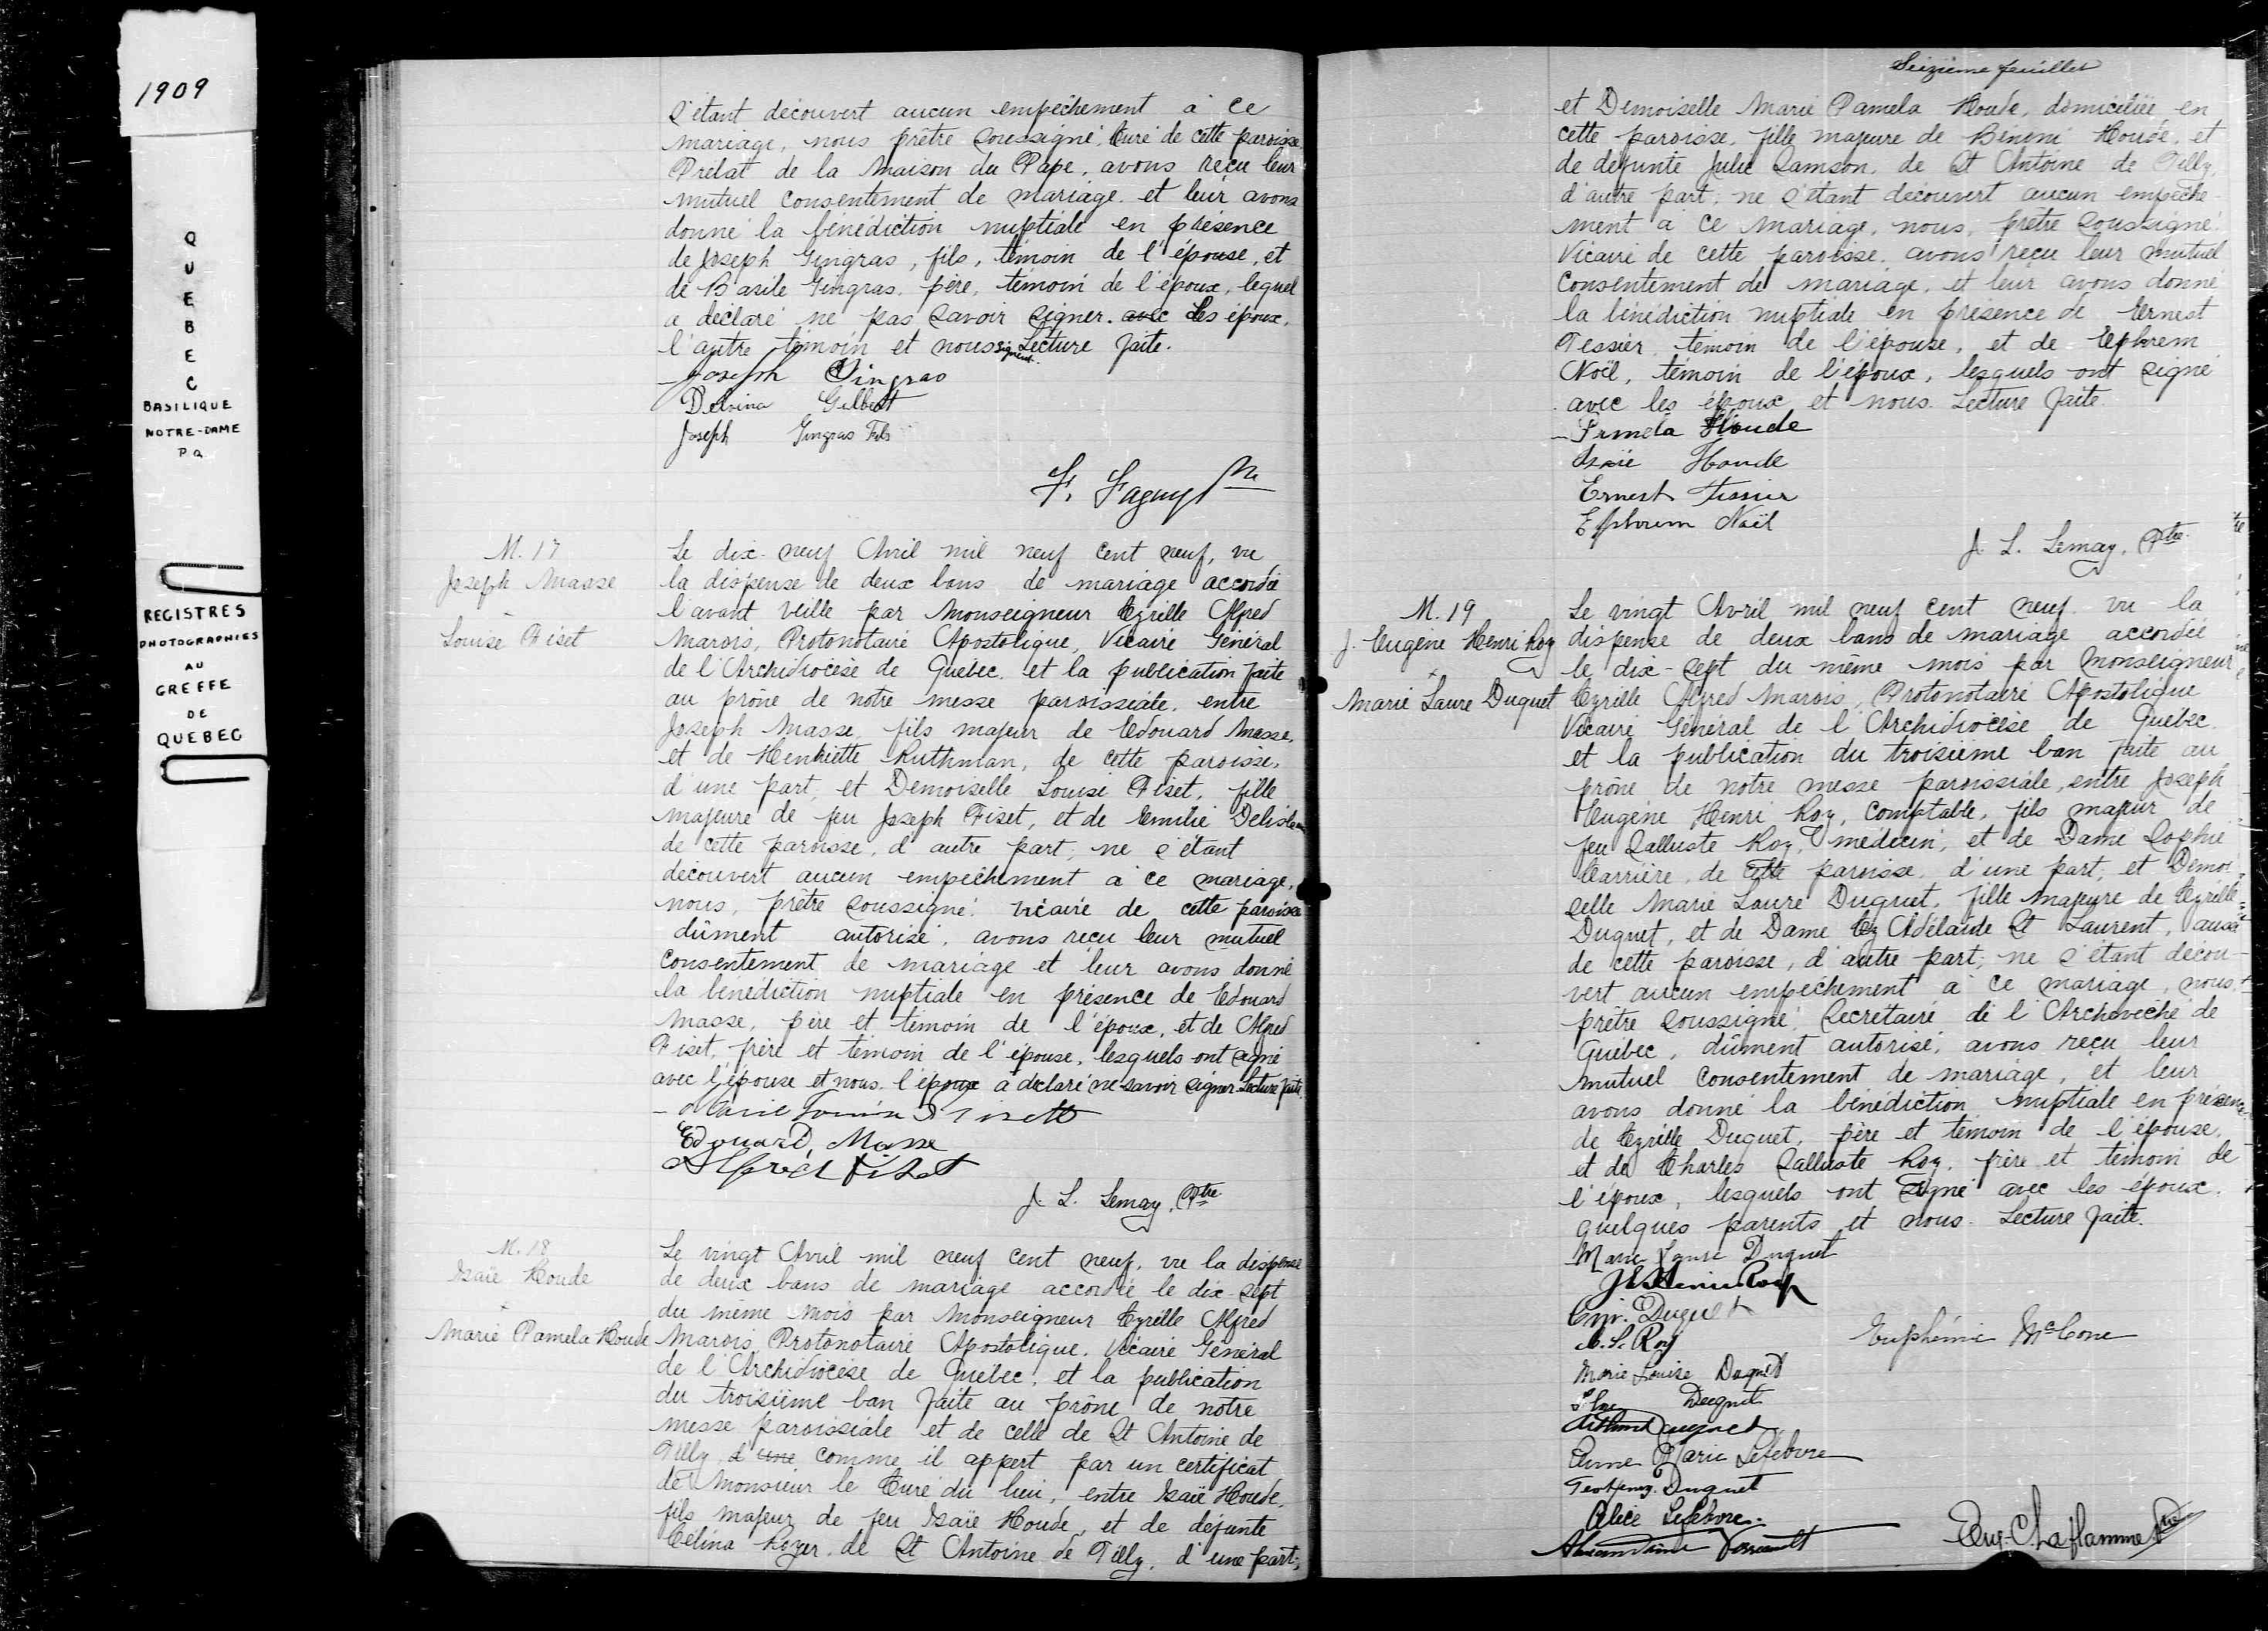 1909
QUEBEC
BASILIQUE
NOTRE-DAME
P.Q.
REGISTRES
PHOTOGRAPHIES
AU
GREFFE
DE
QUEBEC
s'étant découvert aucun empêchement à ce
mariage, nous prêtre soussigné, Curé de cette paroisse
Prélat de la Maison du Pape, avons reçu leur
mutuel consentement de mariage et leur avons
donné la bénédiction nuptiale en présence
de Joseph Gingras, fils, témoin de l'épouse, et
de Basile Gingras, père, témoin de l'époux, lequel
a déclaré ne pas savoir signer. avec Les époux,
l'autre témoin et nous signent. Lecture faite.
Joseph Gingras
Delvina Gilbert
Joseph Gingras Fils
F. Faguy Ptre
M. 17
Joseph Masse
Louise Fiset
Le dix-neuf Avril mil neuf cent neuf, vu
la dispense de deux bans de mariage accordée
l'avant veille par Monseigneur Cyrille Alfred
Marois, Protonotaire Apostolique, Vicaire Général
de l'Archidiocèse de Québec, et la publication faite
au prône de notre messe paroissiale, entre
Joseph Masse, fils majeur de Edouard Masse,
et de Henriette Ruthman, de cette paroisse,
d'une part, et Demoiselle Louise Fiset, fille
majeure de feu Joseph Fiset, et de Emilie Delisle
de cette paroisse, d'autre part; ne s'étant
découvert aucun empêchement à ce mariage,
nous, prêtre soussigné, vicaire de cette paroisse
dûment autorisé, avons reçu leur mutuel
consentement de mariage et leur avons donné
la bénédiction nuptiale en présence de Edouard
Masse, père et témoin de l'époux, et de Alfred
Fiset, frère et témoin de l'épouse, lesquels ont signé
avec l'épouse et nous. l'époux a déclaré ne savoir signer. Lecture faite.
Marie Louise Fisette
Edouard Masse
Alfred Fiset
J. L. Lemay, Ptre
M. 18
Isaïe Houde
+
Marie Pamela Houde
Le vingt Avril mil neuf cent neuf, vu la dispense
de deux bans de mariage accordée le dix-sept
du même mois par Monseigneur Cyrille Alfred
Marois, Protonotaire Apostolique, Vicaire Général
de l'Archidiocèse de Québec, et la publication
du troisième ban faite au prône de notre
messe paroissiale et de celle de St Antoine de
Tilly, d'une comme il appert par un certificat
de Monsieur le Curé du lieu, entre Isaïe Houde,
fils majeur de feu Isaïe Houde, et de défunte
Célina Royer, de St Antoine de Tilly, d'une part;
Seizième feuillet
et Demoiselle Marie Pamela Houde, domiciliée en
cette paroisse, fille majeure de Bénoni Houde, et
de défunte Julie Samson, de St Antoine de Tilly,
d'autre part; ne s'étant découvert aucun empêche-
ment à ce mariage, nous, prêtre soussigné,
Vicaire de cette paroisse, avons reçu leur mutuel
consentement de mariage, et leur avons donné
la bénédiction nuptiale en présence de Ernest
Tessier, témoin de l'épouse, et de Ephrem
Noël, témoin de l'époux, lesquels ont signé
avec les époux et nous. Lecture faite.
Pamela Houde
Isaïe Houde
Ernest Tessier
Ephrem Noël
J. L. Lemay, Ptre
M. 19
J. Eugène Henri Roy
+
Marie Laure Duquet
Le vingt Avril mil neuf cent neuf, vu la
dispense de deux bans de mariage accordée
le dix-sept du même mois par Monseigneur
Cyrille Alfred Marois, Protonotaire Apostolique
Vicaire Général de l'Archidiocèse de Québec
et la publication du troisième ban faite au
prône de notre messe paroissiale, entre Joseph
Eugène Henri Roy, comptable, fils majeur de
feu Salluste Roy, médecin, et de Dame Sophie
Carrière, de cette paroisse, d'une part, et Demoi-
selle Marie Laure Duquet, fille majeure de Cyrille
Duquet, et de Dame Cy Adélaïde St Laurent, aussi
de cette paroisse, d'autre part; ne s'étant décou-
vert aucun empêchement à ce mariage, nous,
prêtre soussigné, Secrétaire de l'Archevêché de
Québec, dûment autorisé, avons reçu leur
mutuel consentement de mariage, et leur
avons donné la bénédiction nuptiale en présence
de Cyrille Duquet, père et témoin de l'épouse,
et de Charles Salluste Roy, frère et témoin de
l'époux, lesquels ont signé avec les époux,
quelques parents et nous. Lecture faite.
Marie Laure Duquet
J E Henri Roy
Cyr. Duquet
C. S. Roy
Euphémie McCone
Marie Louise Duquet
Duquet
Arthur Duquet
Anne Marie Lefebvre
Duquet
Alice Lefebvre
Eug. C. Laflamme Ptre